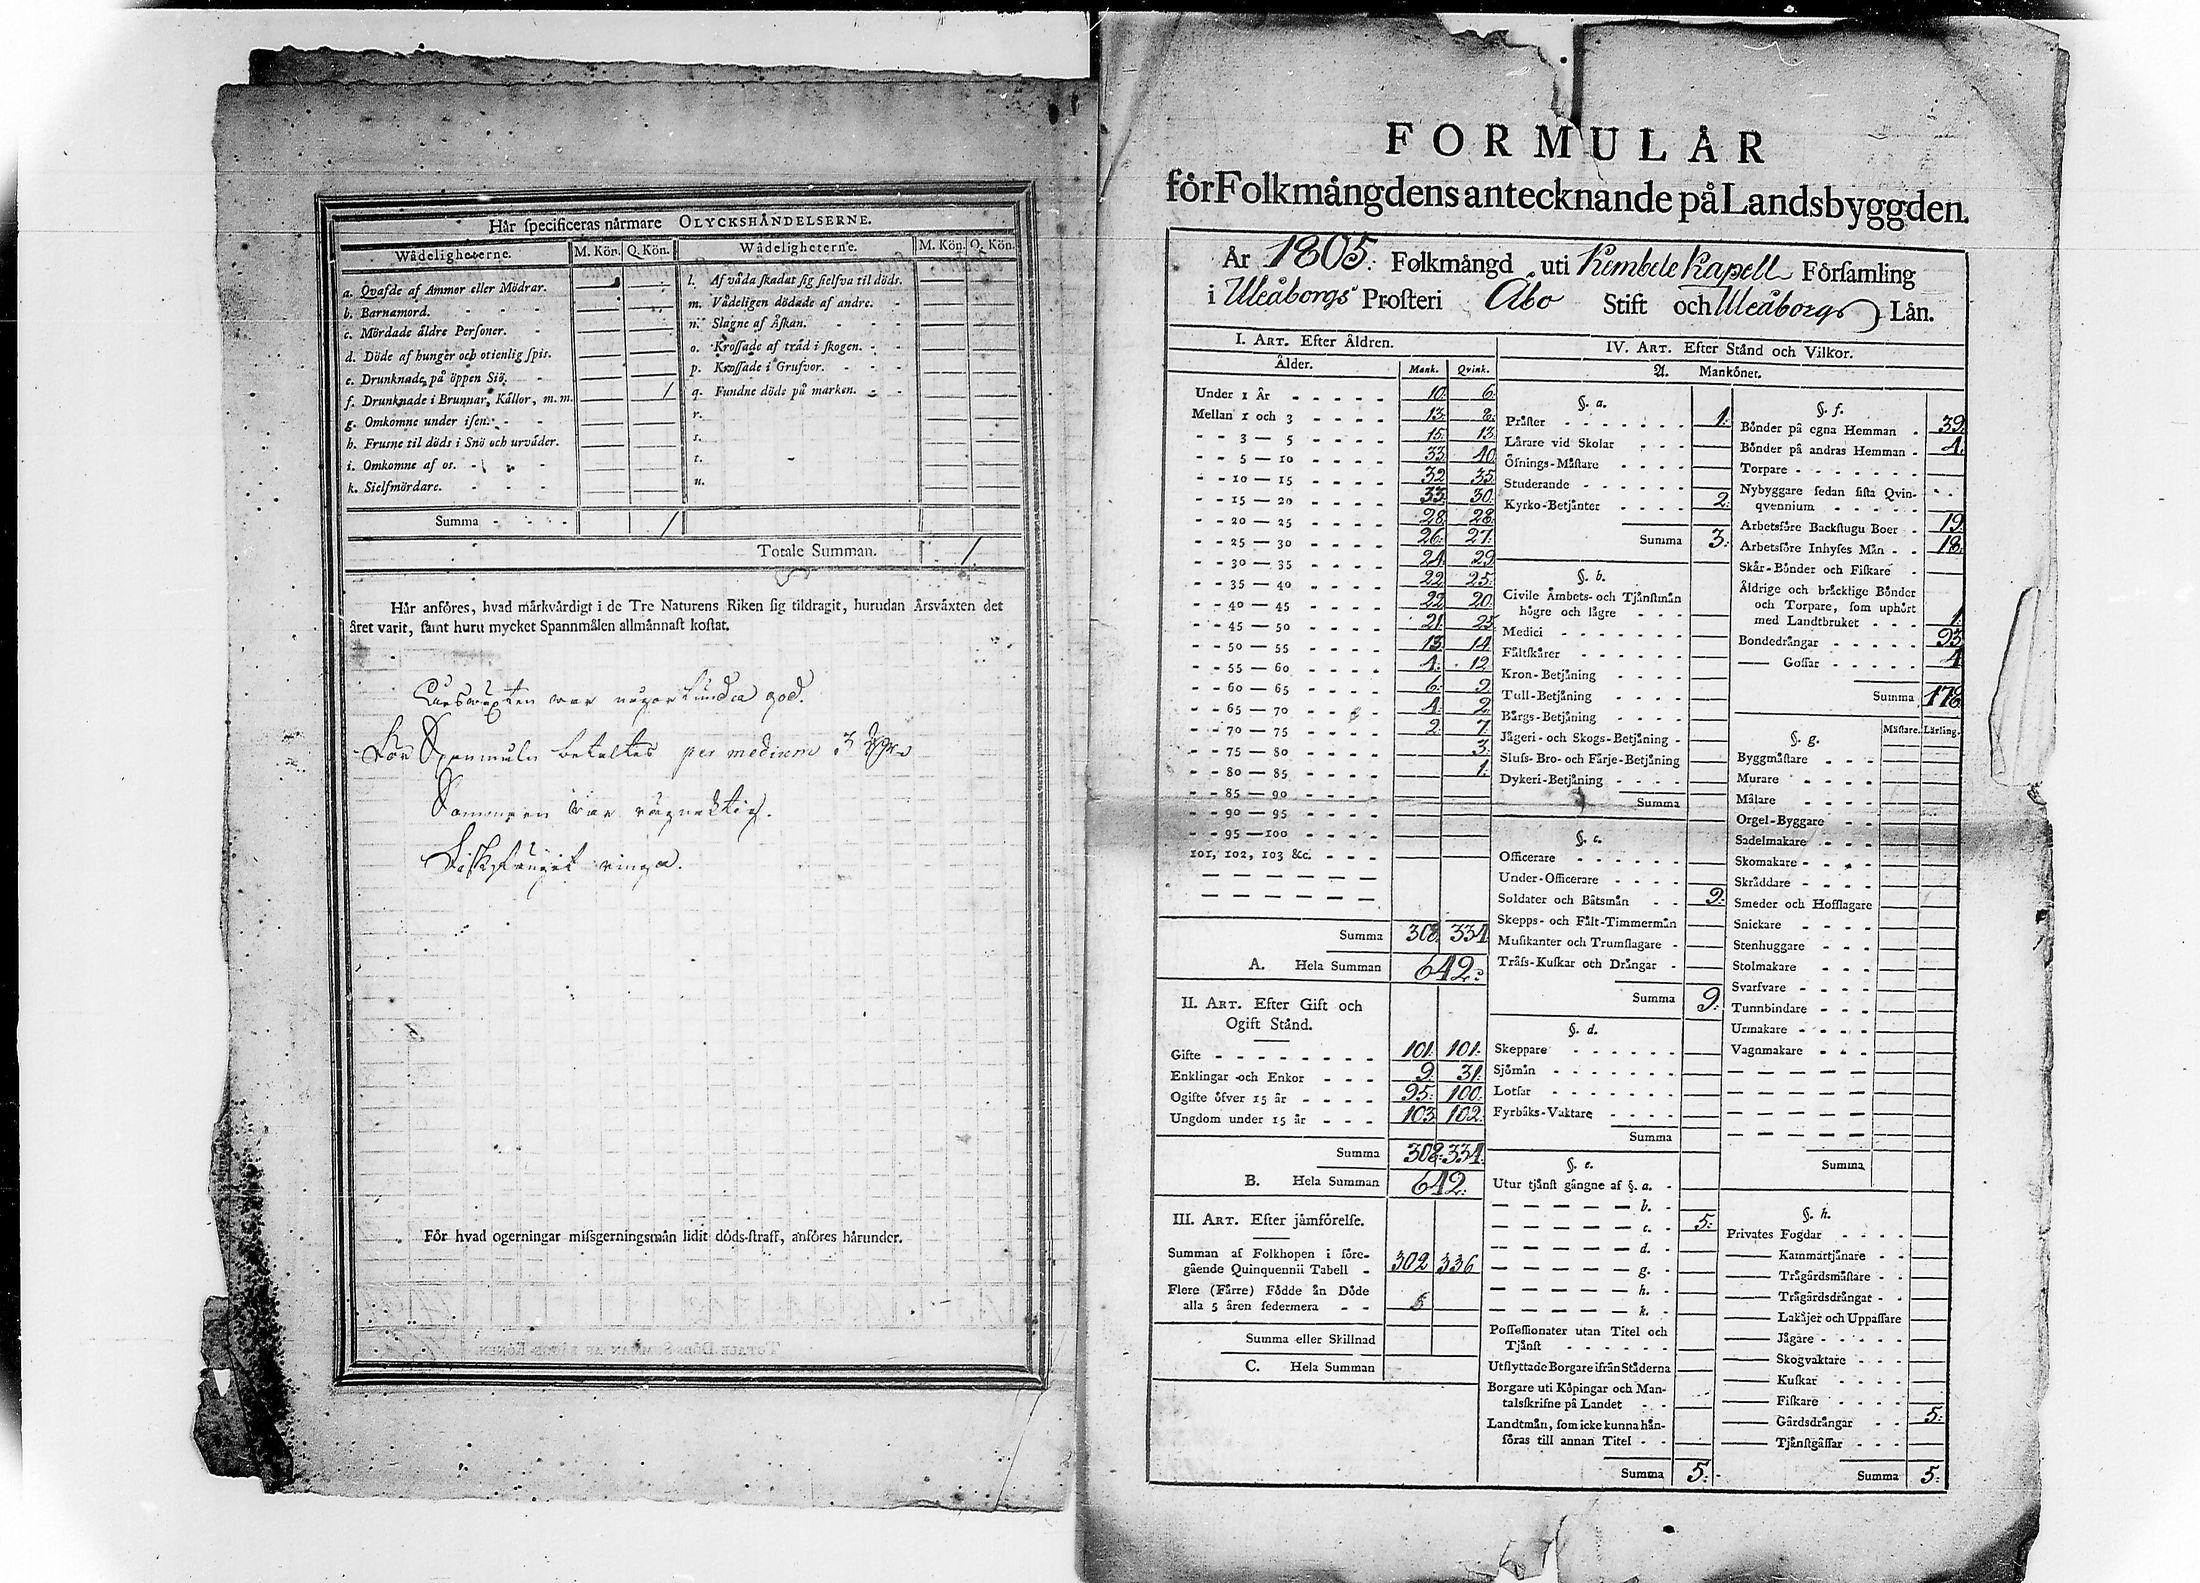 Hår specificeras nårmare OLYCKSHÅNDELSERNE.
Wådeligheterne. M. Kön. Q. Kön. Wådeligheterne. M. Kön. Q. Kön.
a. Qvafde af Ammor eller Mödrar.
b. Barnamord.
c. Mördade åldre Personer.
d. Döde af hunger och otienlig spis.
e. Drunknade på öppen Siö.
f. Drunknade i Brunnar, Kållor, m. m. 1
g. Omkomne under isen.
h. Frusne til döds i Snö och urvåder.
i. Omkomne af os.
k. Sielfmördare.
Summa 1
l. Af våda skadat sig sielfva til döds.
m. Vådeligen dödade af andre.
n. Slagne af Åskan.
o. Krossade af tråd i skogen.
p. Krossade i Grufvor.
q. Fundne döde på marken.
r.
s.
t.
u.
Totale Summan. 1.
Hår anföres, hvad mårkvårdigt i de Tre Naturens Riken sig tildragit, hurudan Årsvåxten det
året varit, samt huru mycket Spannmålen allmånnast kostat.
Årswäxten war någorlunda god.
För Spanmåln betaltes per medium 3
Sommaren war rägnaktig.
Fiskfånget ringa.
För hvad ogerningar missgerningsmån lidit döds-straff, anföres hårunder.
FORMULÅR
för Folkmångdens antecknande på Landsbyggden.
År 1805. Folkmångd uti Kembele Kapell Församling
i Uleåborgs Prosteri Åbo Stift och Uleåborgs Lån.
I. ART. Efter Åldren.
Ålder. Mank. Qvink.
Under 1 År 10. 6.
Mellan 1 och 3 13. 8.
3 — 5 15. 13.
5 — 10 33. 40.
10 — 15 32. 35.
15 — 20 33. 30.
20 — 25 28. 28.
25 — 30 26. 27.
30 — 35 21. 29
35 — 40 22. 25.
40 — 45 22. 20.
45 — 50 21. 25.
50 — 55 13. 14.
55 — 60 4. 12
60 — 65 6. 9.
65 — 70 4. 2.
70 — 75 2. 7.
75 — 80 3.
80 — 85 1.
85 — 90
90 — 95
95 — 100
101, 102, 103 &c.
Summa 308. 334
A. Hela Summan 642.
II. ART. Efter Gift och
Ogift Stånd.
Gifte 101. 101.
Enklingar och Enkor 9. 31.
Ogifte öfver 15 år 95. 100.
Ungdom under 15 år 103. 102.
Summa 308. 334.
B. Hela Summan 642.
III. ART. Efter jåmförelse.
Summan af Folkhopen i före-
gående Quinquennii Tabell 302 336
Flere (Fårre) Födde ån Döde
alla 5 åren sedermera
Summa eller Skillnad
C. Hela Summan
IV. ART. Efter Stånd och Vilkor.
A. Mankönet.
§. a.
Pråster 1.
Lårare vid Skolar
Öfnings-Måstare
Studerande
Kyrko-Betjånter 2.
Summa 3.
§. b.
Civile Åmbets- och Tjånstmån
högre och lågre
Medici
Fåltskårer
Kron-Betjåning
Tull-Betjåning
Bårgs-Betjåning
Jågeri- och Skogs-Betjåning
Sluss- Bro- och Fårje-Betjåning
Dykeri-Betjåning
Summa
§. c.
Officerare
Under-Officerare
Soldater och Båtsmån 9.
Skepps- och Fålt-Timmermån
Musikanter och Trumslagare
Tråss-Kuskar och Drångar
Summa 9.
§. d.
Skeppare
Sjömån
Lotsar
Fyrbåks-Vaktare
Summa
§. e.
Utur tjånst gångne af §. a.
b.
c. 5.
d.
g.
h.
k.
Possessionater utan Titel och
Tjånst
Utflyttade Borgare ifrån Ståderna
Borgare uti Köpingar och Man-
talsskrifne på Landet
Landtmån, som icke kunna hån-
föras till annan Titel
Summa 5.
§. f.
Bönder på egna Hemman 39.
Bönder på andras Hemman 4.
Torpare
Nybyggare sedan sista Qvin-
qvennium
Arbetsföre Backstugu Boer 19.
Arbetsföre Inhyses Mån 18.
Skår-Bönder och Fiskare
Åldrige och bråcklige Bönder
och Torpare, som uphört
med Landtbruket 1.
Bondedrångar 93.
— Gossar 4
Summa 178.
§. g. Måstare. Lårling.
Byggmåstare
Murare
Målare
Orgel-Byggare
Sadelmakare
Skomakare
Skråddare
Smeder och Hofslagare
Snickare
Stenhuggare
Stolmakare
Svarfvare
Tunnbindare
Urmakare
Vagnmakare
Summa
§. h.
Privates Fogdar
— Kammartjånare
— Trågårdsmåstare
— Trågårdsdrångar
— Lakåjer och Uppassare
— Jågare
— Skogvaktare
— Kuskar
— Fiskare
— Gårdsdrångar 5.
— Tjånstgåssar
Summa 5.